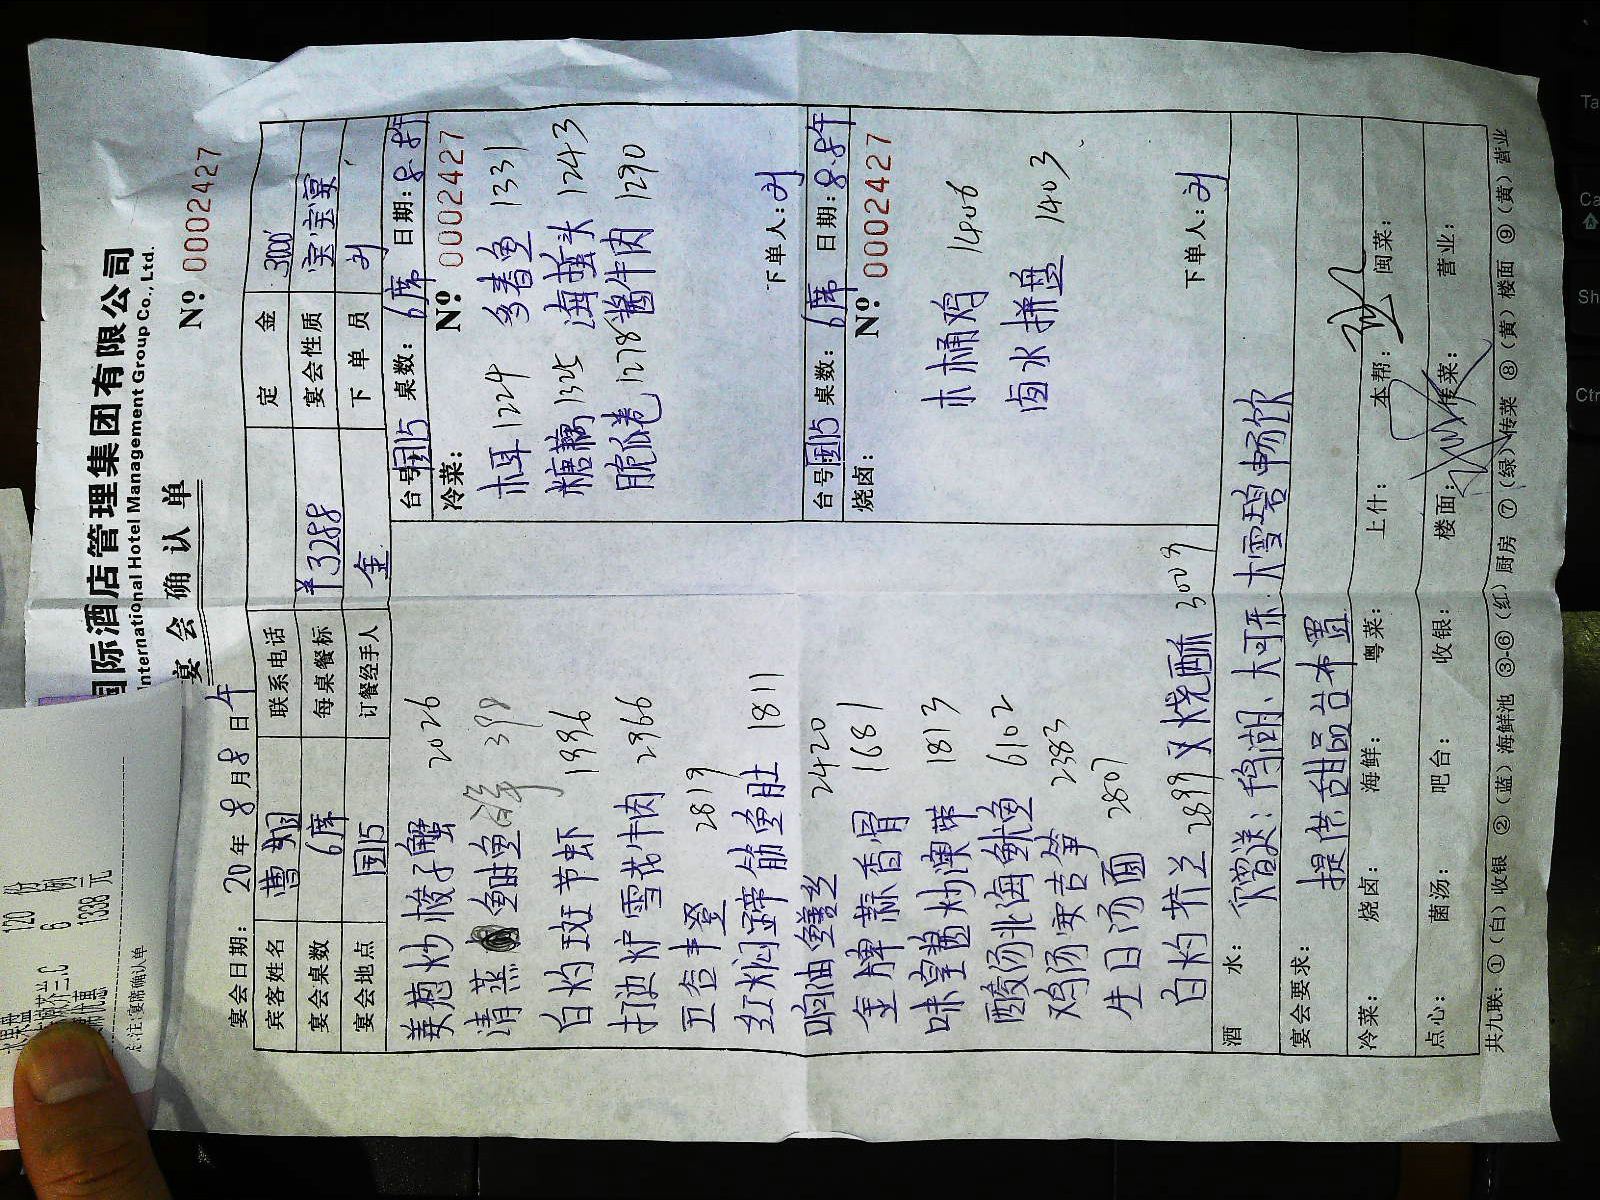 国际酒店管理集团有限公司
International Hotel Management Group Co., Ltd.
宴会确认单
№ 0002427
宴会日期: 20 年 8 月 8 日 午
宾客姓名 曹翔 联系电话 定金 3000
宴会桌数 6席 每桌餐标 ¥3288 宴会性质 宝宝宴
宴会地点 国15 订餐经手人 金 下单员 刘
姜葱炒梭子蟹 2026
清蒸 鱼 398
白灼斑节虾 1996
打边炉雪花牛肉 2966
五谷丰登 2819
红焖蹄筋鱼肚 1811
响油鳝丝 2420
金牌蒜香骨 1681
味皇酱炒澳带 1813
酸汤北海鱿鱼 6102
鸡汤煲杏笋 2383
生日汤面 2807
白灼芥兰 2899 叉烧酥 3009
台号: 国15 桌数: 6席 日期: 8.8午
冷菜: № 0002427
木耳 1224 多春鱼 1331
糖藕 1325 海蜇头 1243
脆瓜卷 1278 酱牛肉 1290
下单人: 刘
台号: 国15 桌数: 6席 日期: 8.8午
烧卤: № 0002427
木桶鸡 1406
卤水拼盘 1403
下单人: 刘
酒水: 赠送: 大可乐、大雪碧畅饮
宴会要求: 提供甜品台布置
冷菜: 烧卤: 海鲜: 粤菜: 上什: 本帮: 闽菜:
点心: 菌汤: 吧台: 收银: 楼面: 传菜: 营业:
共九联: ①(白)收银 ②(蓝)海鲜池 ③-⑥(红)厨房 ⑦(绿)传菜 ⑧(黄)楼面 ⑨(黄)营业
120 份
6 例
1338 元
忘注:宴席确认单